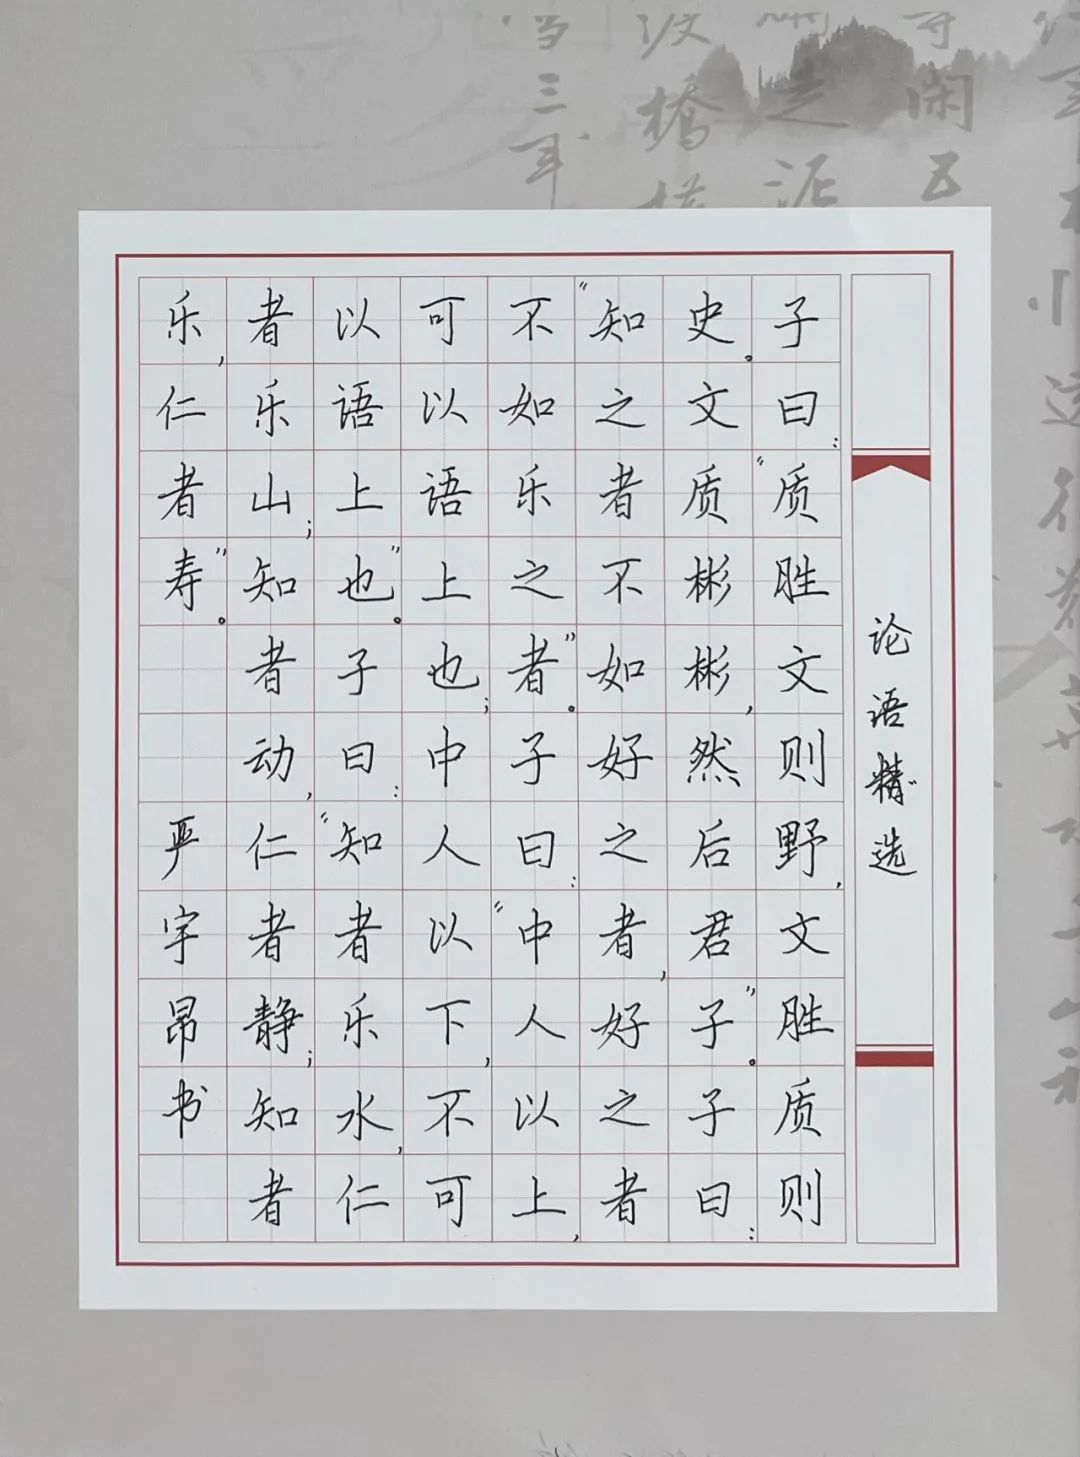 论语精选
子曰:“质胜文则野,文胜质则
史。文质彬彬,然后君子”。子曰:
“知之者不如好之者,好之者
不如乐之者”。子曰:“中人以上,
可以语上也;中人以下,不可
以语上也”。子曰:“知者乐水,仁
者乐山;知者动,仁者静;知者
乐,仁者寿”。
严宇昂书